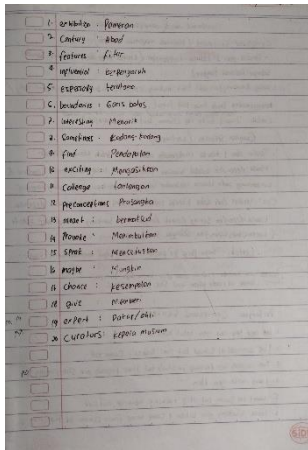 1. exhibition : Pameran
2. Century : Abad
3. features : fitur
4. influential : berpengaruh
5. especially : terutama
6. boundaries : Garis batas
7. interesting : Menarik
8. Sometimes : Kadang-kadang
9. find : Pendapatan
10 exciting : Mengasikkan
11 Challenge : tantangan
12 preconceptions Prasangka
13 : bermaksud
14 Provoke : Menimbulkan
15 : Mencetuskan
16 maybe : Mungkin
17 chance : kesempatan
18 give : Memberi
19 expert : Pakar/ahli
20 Curators : kepala musium